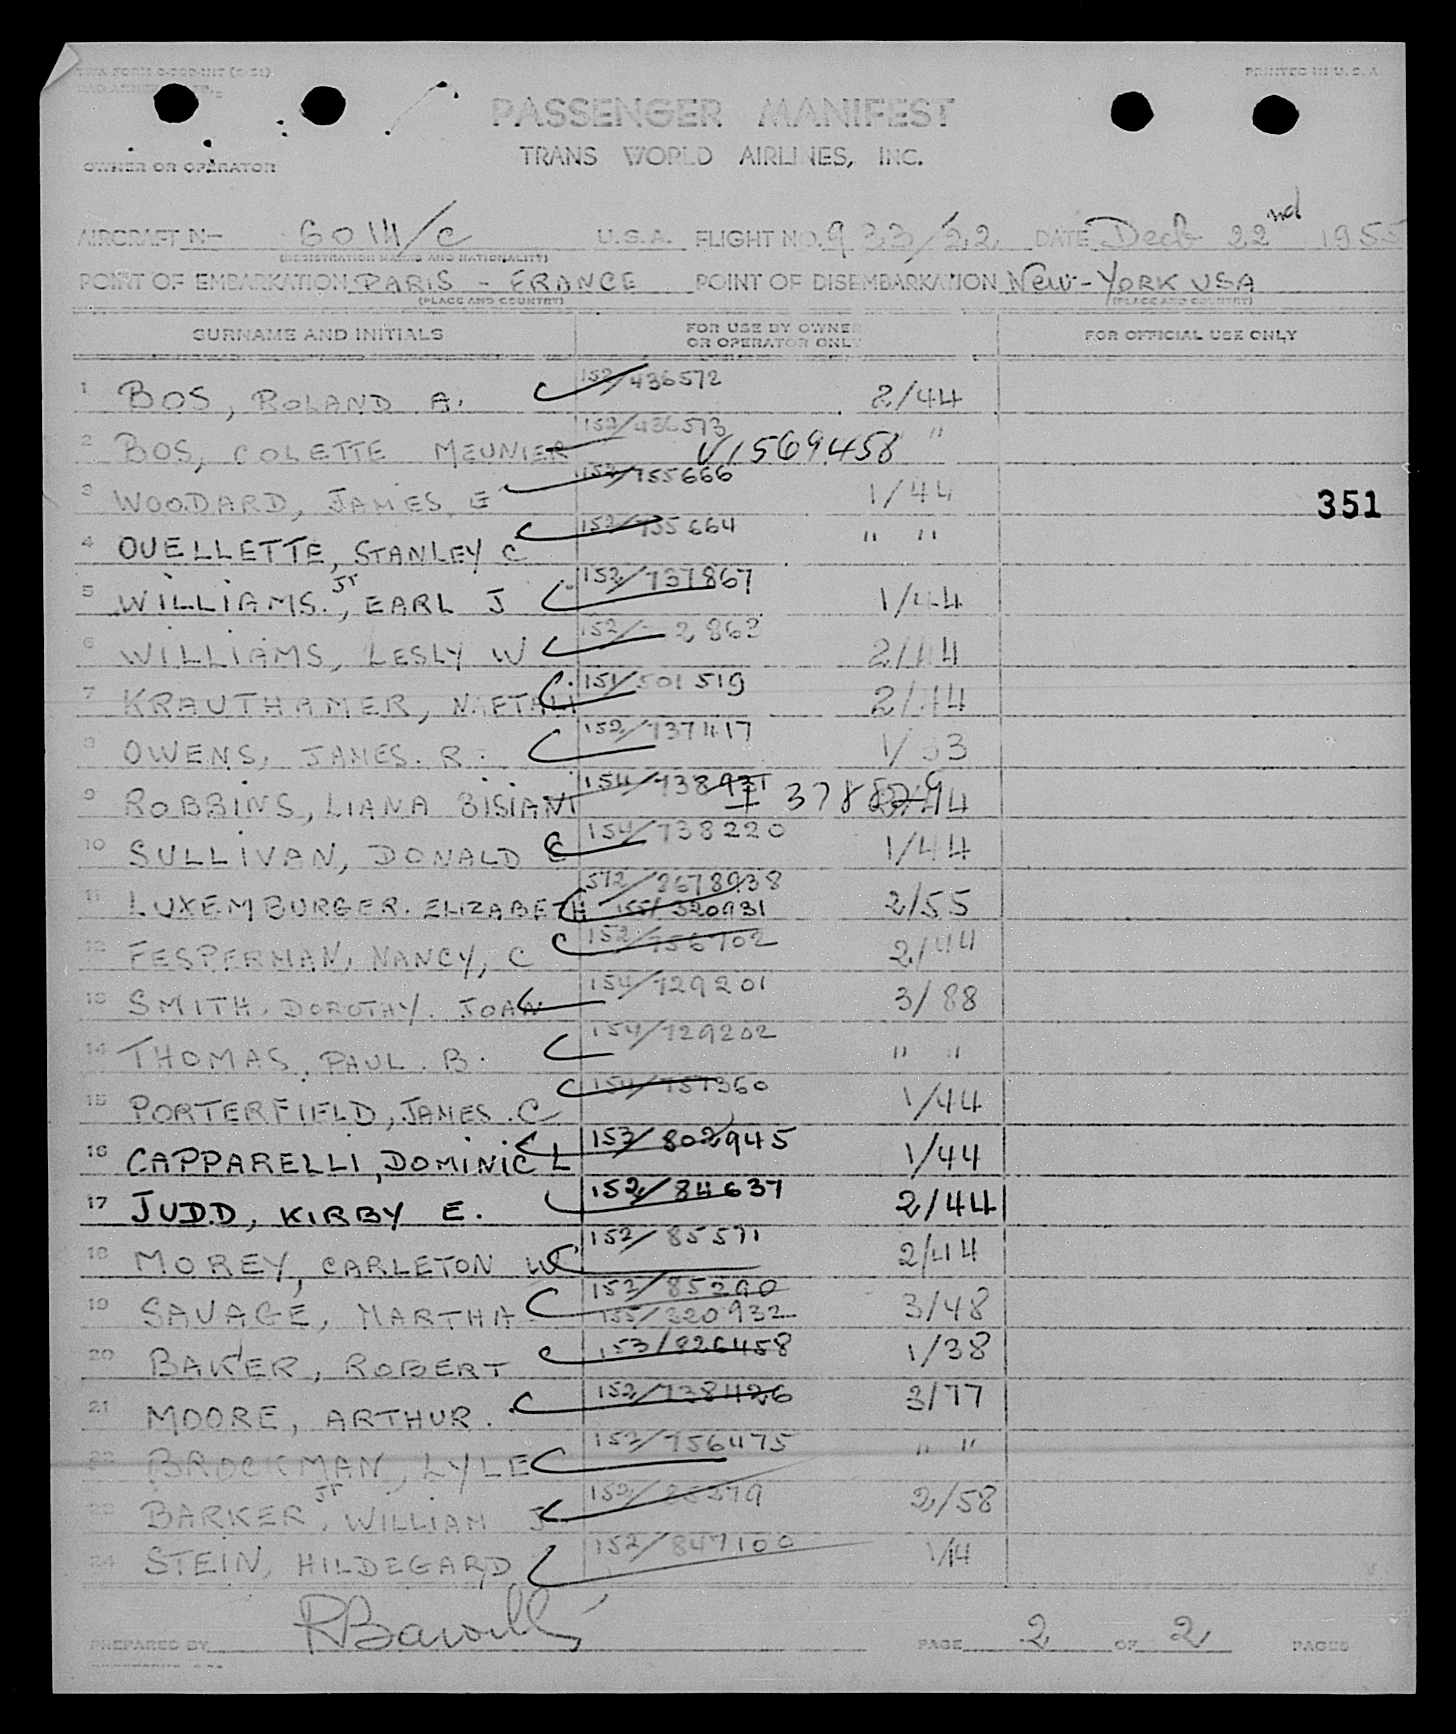 PRINTED IN U.S.A.
PASSENGER MANIFEST
OWNER OR OPERATOR
TRANS WORLD AIRLINES, INC.
AIRCRAFT No 6014/C U.S.A. FLIGHT NO. 933/22 DATE Decb 22nd 1955
(REGISTRATION MARKS AND NATIONALITY)
POINT OF EMBARKATION PARIS - FRANCE POINT OF DISEMBARKATION New-YORK USA
(PLACE AND COUNTRY) (PLACE AND COUNTRY)
SURNAME AND INITIALS FOR USE BY OWNER OR OPERATOR ONLY FOR OFFICIAL USE ONLY
1 BOS, ROLAND A. 152/436572 2/44
2 BOS, COLETTE MEUNIER 152/436573 V1569458 "
3 WOODARD, JAMES E 152/755666 1/44
351
4 OUELLETTE, STANLEY C 152/755664 " "
5 WILLIAMS Jr, EARL J 152/737867 1/44
6 WILLIAMS, LESLY W 152/ 2/44
7 KRAUTHAMER, NAFTALI 151/501519 2/44
8 OWENS, JAMES. R. 152/737417 1/33
9 ROBBINS, LIANA BISIANI 154/738931 I
10 SULLIVAN, DONALD E 154/738220 1/44
11 LUXEMBURGER. ELIZABETH 572/8678938 2/55
155/320931
12 FESPERMAN, NANCY, C 152/756702 2/44
13 SMITH. DOROTHY. JOAN 154/729201 3/88
14 THOMAS, PAUL. B. 154/729202 " "
15 PORTERFIELD, JAMES. C 154/757360 1/44
16 CAPPARELLI, DOMINIC L 153/802945 1/44
17 JUDD, KIRBY E. 152/84637 2/44
18 MOREY, CARLETON W 152/85571 2/44
19 SAVAGE, MARTHA 152/85290 3/48
155/320932
20 BAKER, ROBERT 153/826458 1/38
21 MOORE, ARTHUR. 152/738426 3/77
22 BROCKMAN, LYLE 152/756475 " "
23 BARKER Jr, WILLIAM J 152/85279 2/58
24 STEIN, HILDEGARD 152/847100 1/14
PREPARED BY PAGE 2 OF 2 PAGES